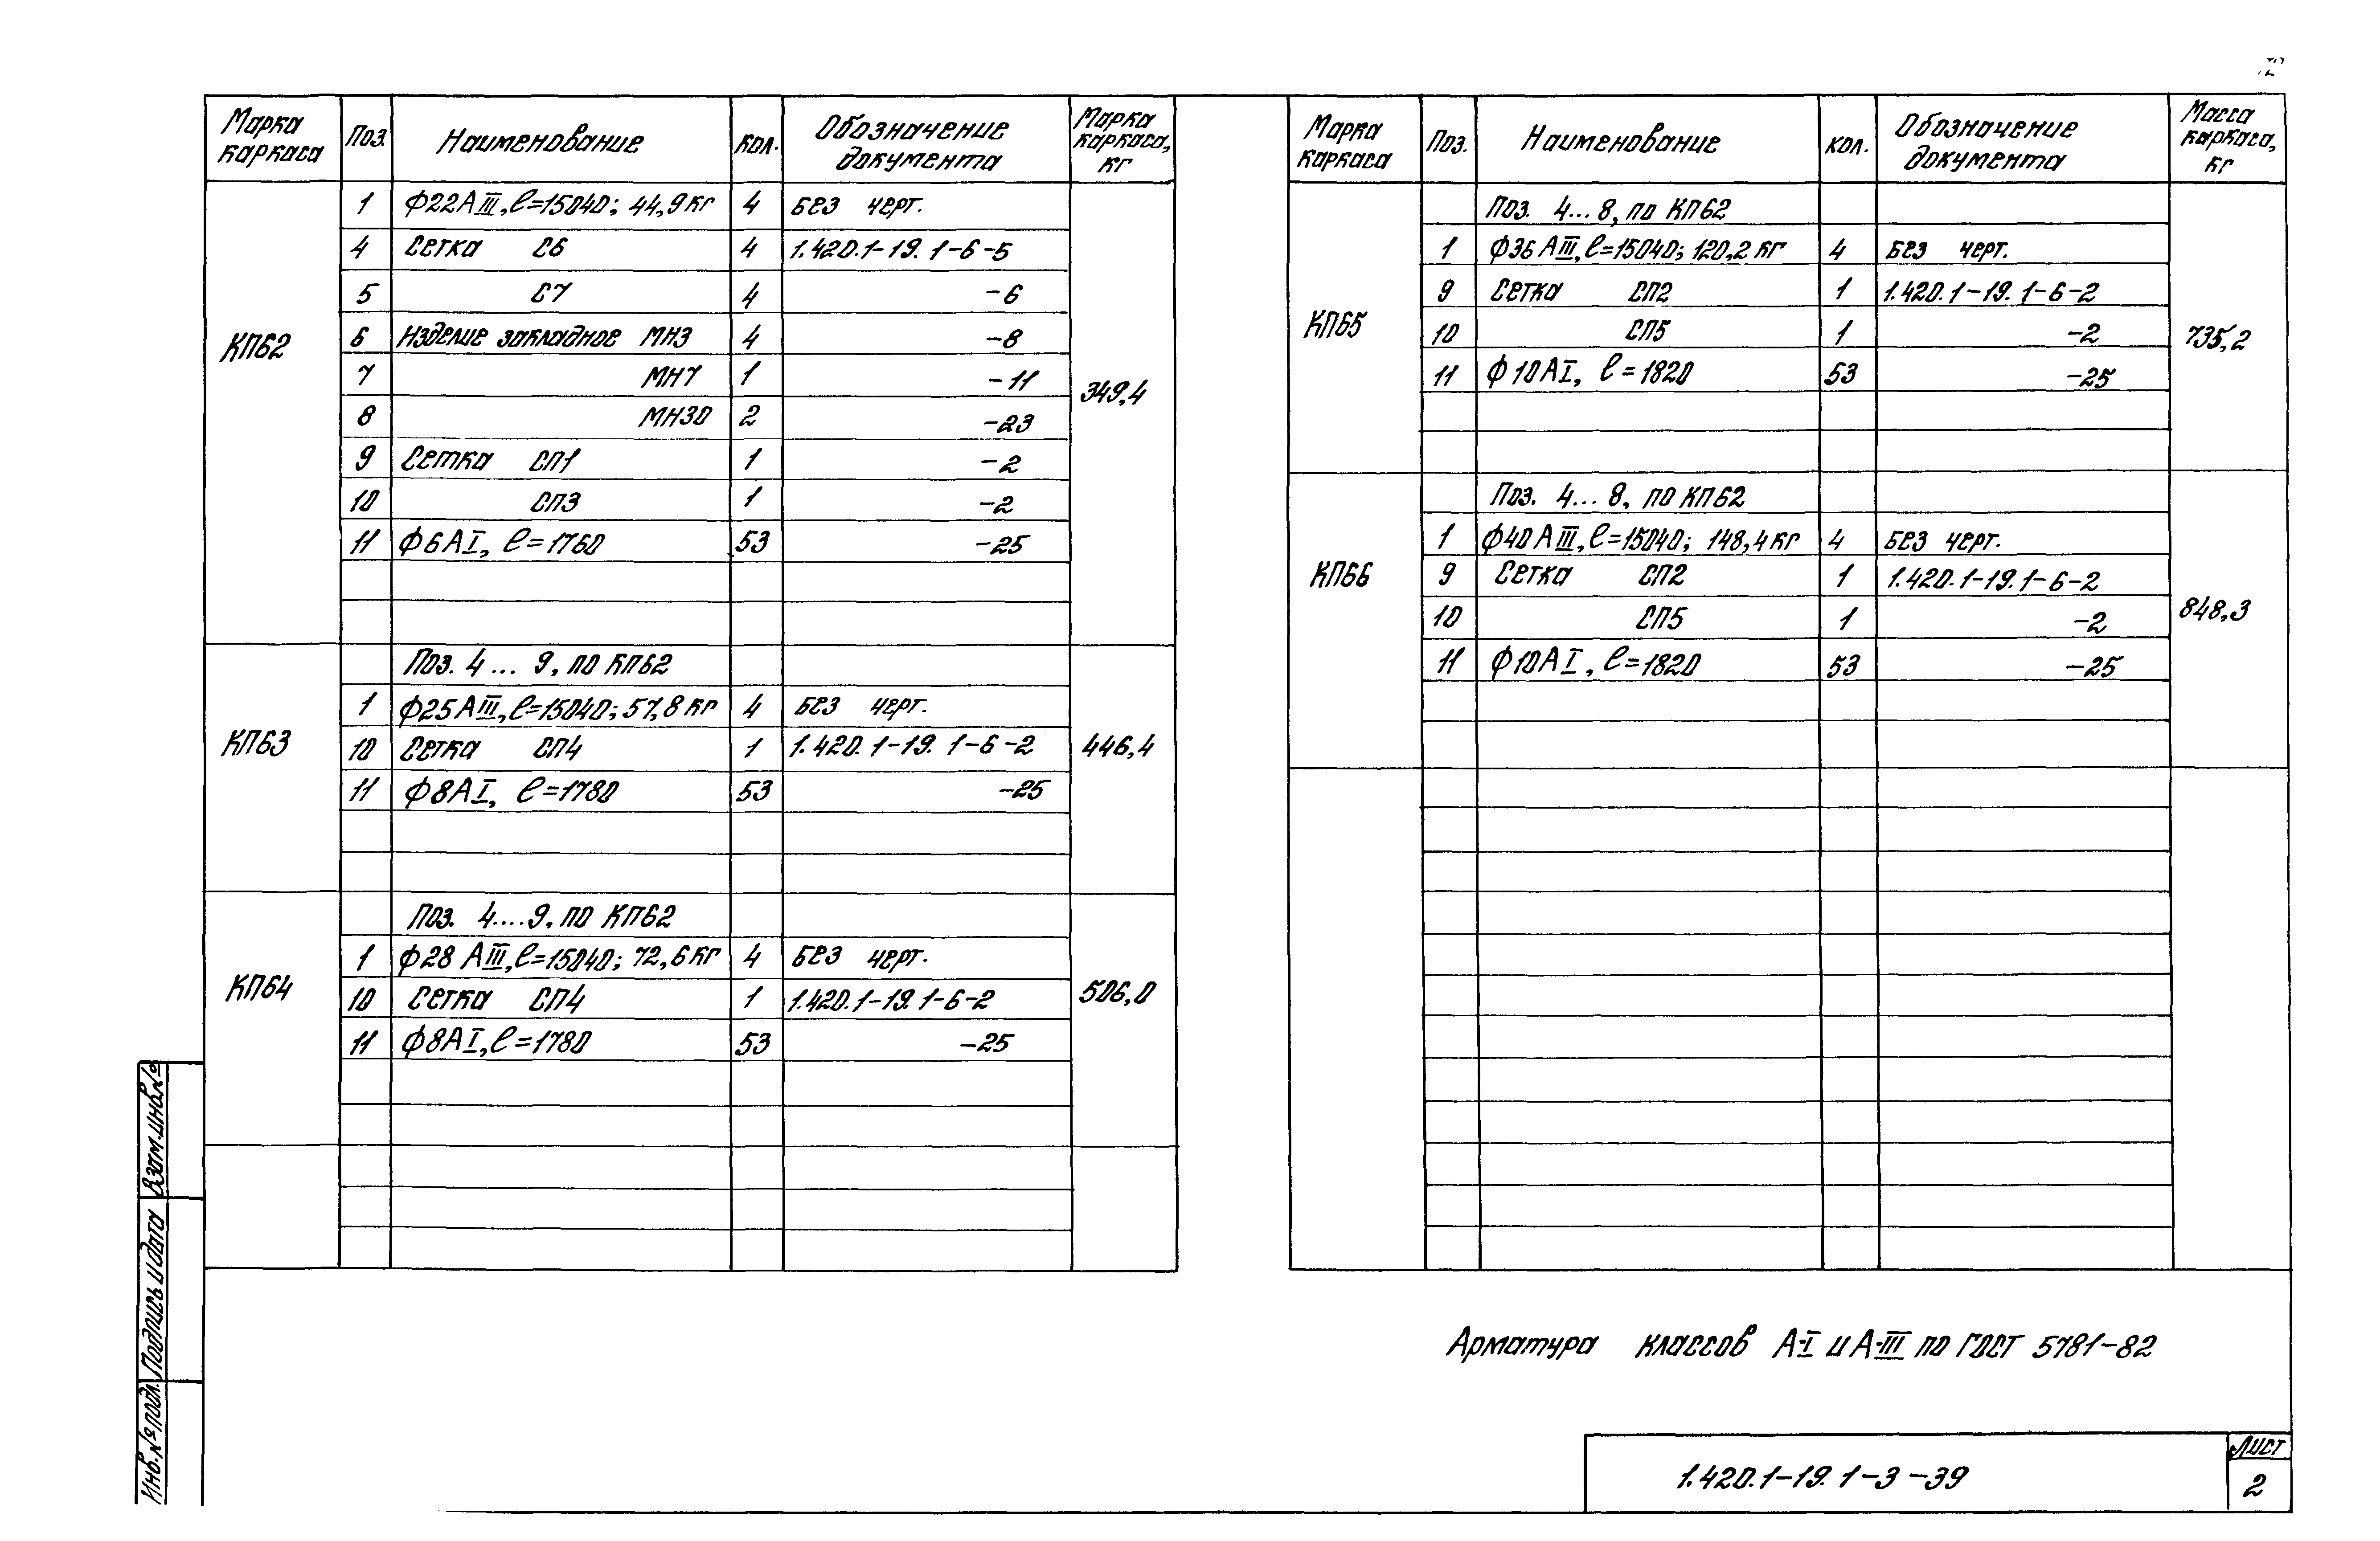 Марка каркаса Поз. Наименование кол. Обозначение документа Марка каркаса, кг
КП62 349,4
1 ф22АIII, ℓ=15040; 44,9кг 4 без черт.
4 Сетка С6 4 1.420.1-19.1-6-5
5 С7 4 -6
6 Изделие закладное МН3 4 -8
7 МН7 1 -11
8 МН30 2 -23
9 Сетка СП1 1 -2
10 СП3 1 -2
11 ф6АI, ℓ=1760 53 -25
КП63 446,4
Поз. 4... 9, по КП62
1 ф25АIII, ℓ=15040; 57,8кг 4 без черт.
10 Сетка СП4 1 1.420.1-19.1-6-2
11 ф8АI, ℓ=1780 53 -25
КП64 506,0
Поз. 4....9, по КП62
1 ф28 АIII, ℓ=15040; 72,6кг 4 без черт.
10 Сетка СП4 1 1.420.1-19.1-6-2
11 ф8АI, ℓ=1780 53 -25
Марка каркаса Поз. Наименование кол. Обозначение документа Масса каркаса, кг
КП65 735,2
Поз. 4...8, по КП62
1 ф36АIII, ℓ=15040; 120,2кг 4 без черт.
9 Сетка СП2 1 1.420.1-19.1-6-2
10 СП5 1 -2
11 ф10АI, ℓ=1820 53 -25
КП66 848,3
Поз. 4...8, по КП62
1 ф40АIII, ℓ=15040; 148,4кг 4 без черт.
9 Сетка СП2 1 1.420.1-19.1-6-2
10 СП5 1 -2
11 ф10АI, ℓ=1820 53 -25
Арматура классов А-I и А-III по ГОСТ 5781-82
1.420.1-19.1-3-39
Лист
2
Взам.инв.№
Подпись и дата
Инв.№подл.